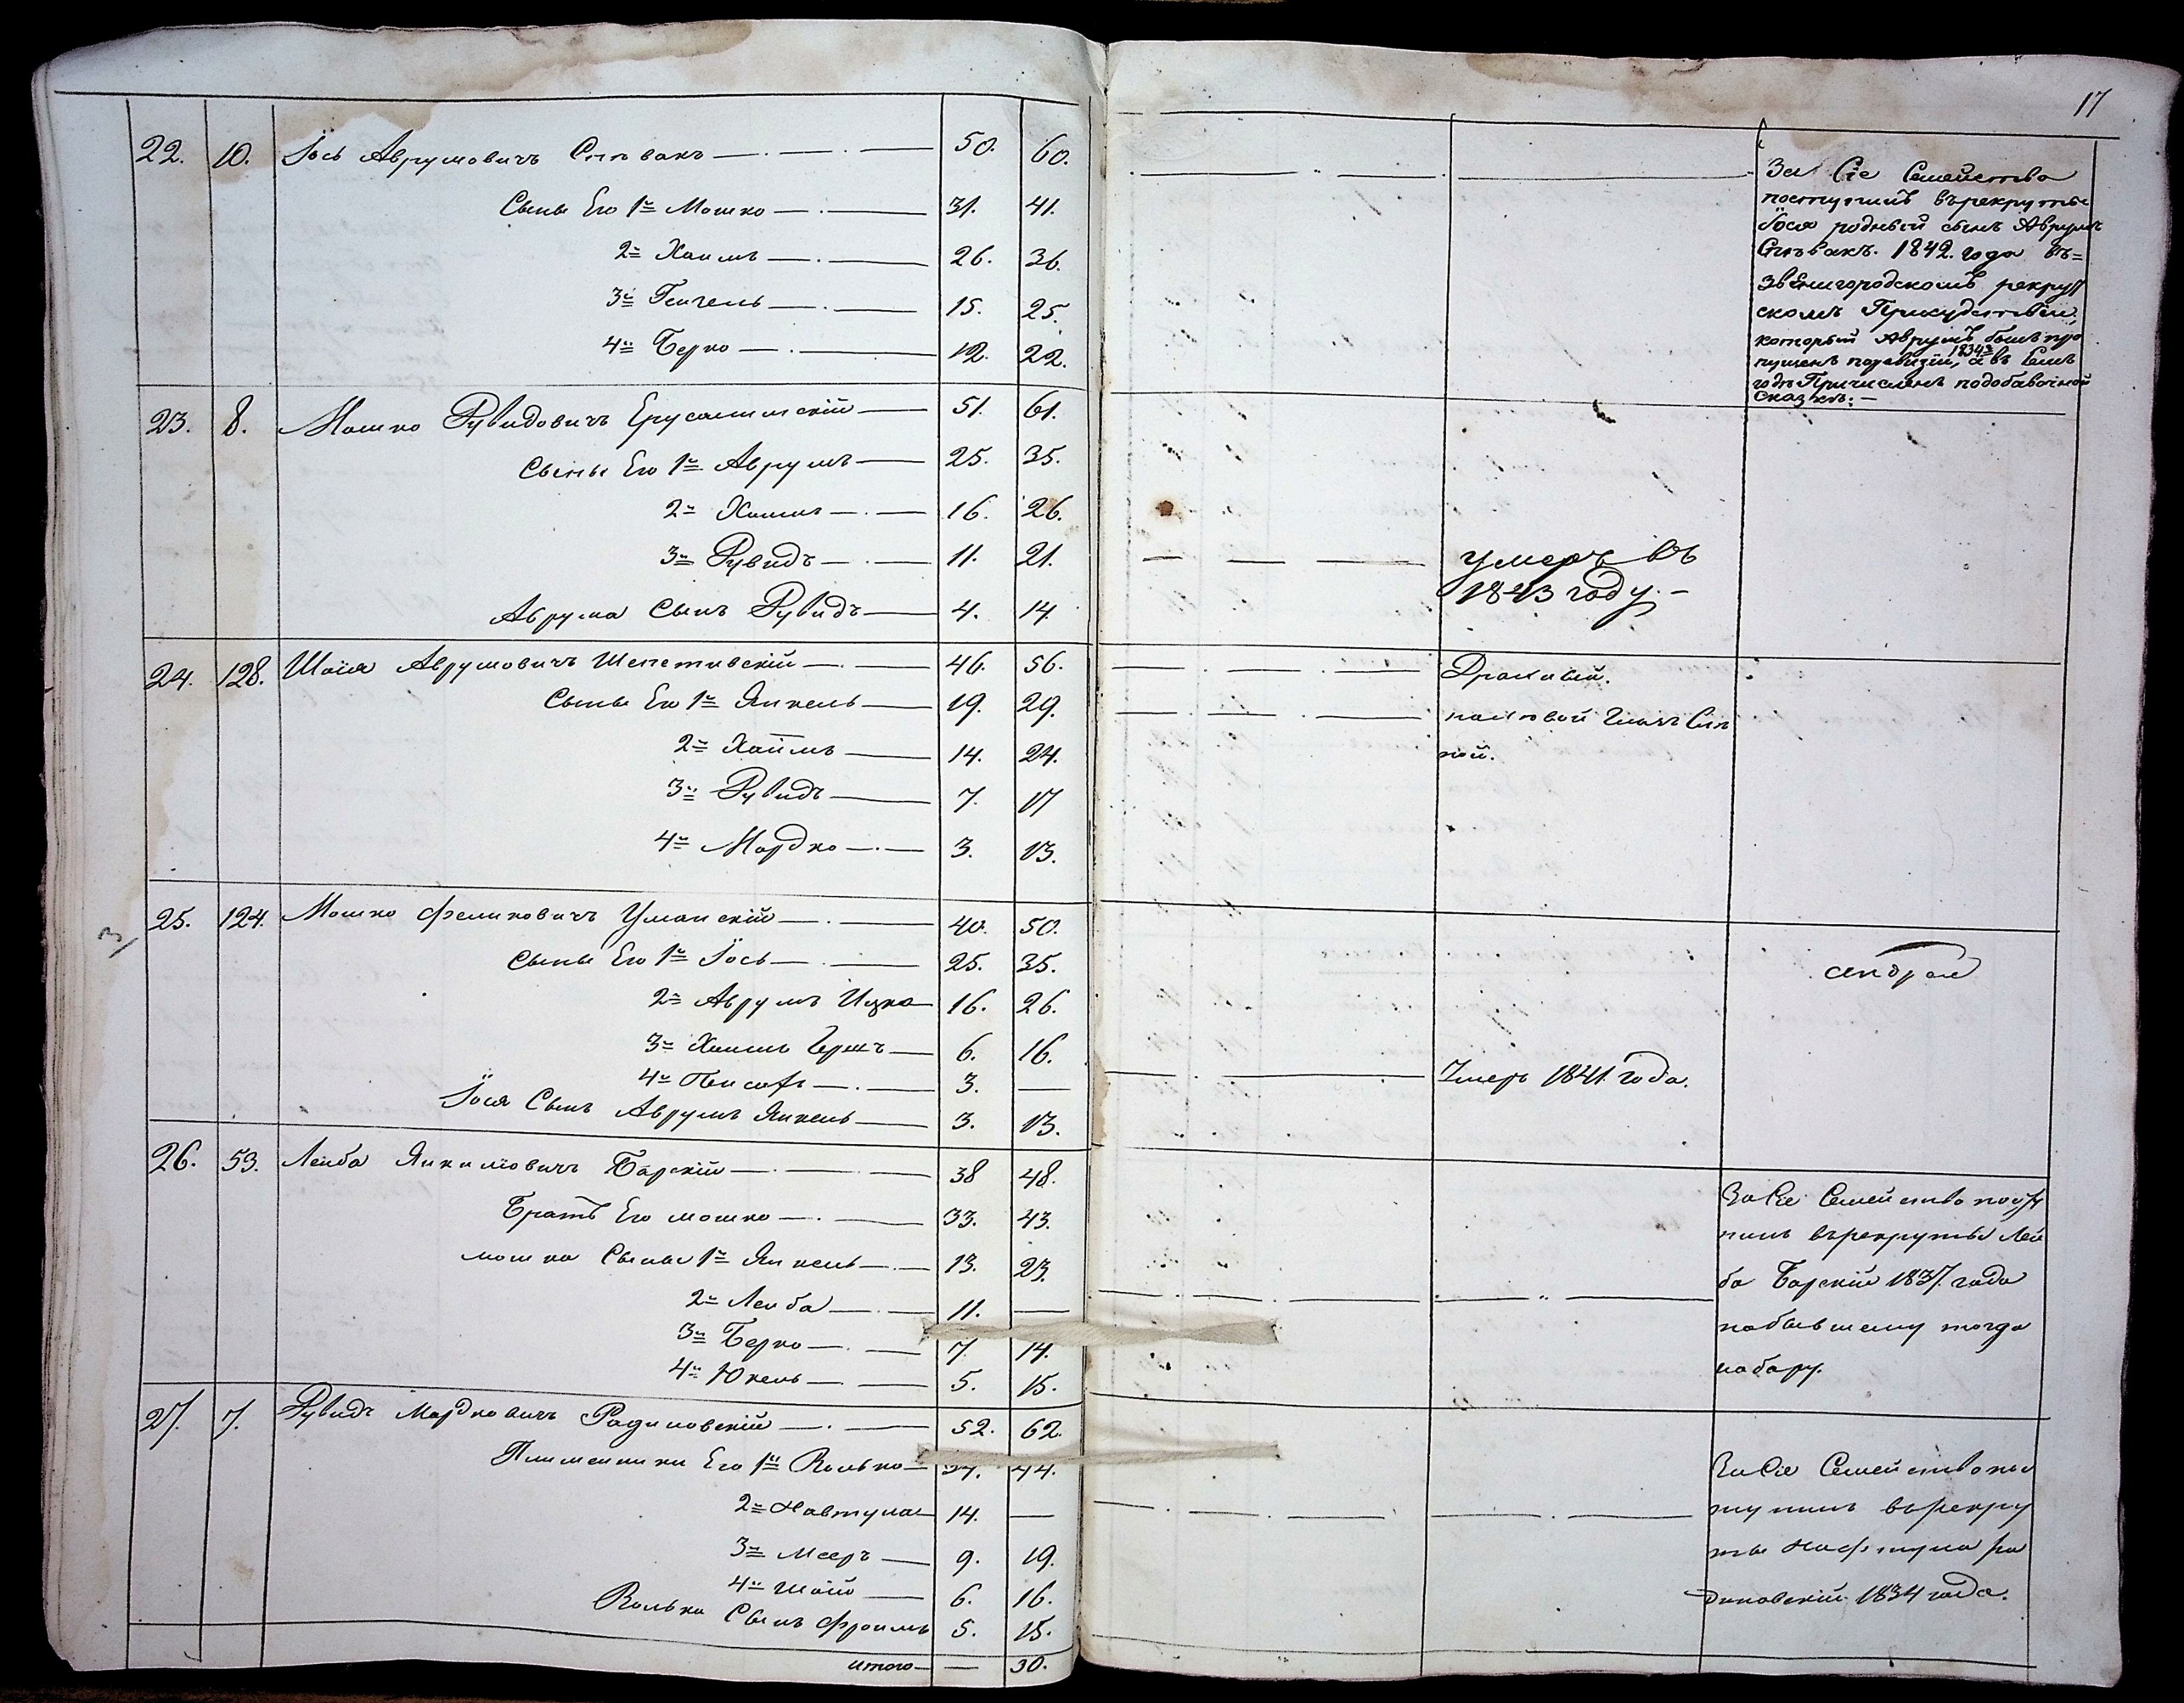 17
22. 10. Іось Аврумовичъ Спѣвакъ 50. 60.
Сыны Его 1й Мошко 31. 41.
2й Хаимъ 26. 36.
3й 15. 25.
4й Берко 12. 22.
За Сіе Семейство
поступилъ въ рекруты
Іося родный сынъ Аврумъ
Спѣвакъ. 1842. года въ=
Звенигородскомъ рекрут
скомъ Присудствіи,
который Аврумъ былъ про
пущенъ поревизіи, 1834го а въ семъ
годѣ Причисленъ подобавочной
сказкѣ.—
23. 8. Мошко Рувидовичъ Ерусалимскій 51. 61.
Сыны Его 1й Аврумъ 25. 35.
2й Хаимъ 16. 26.
3й Рувидъ 11. 21.
умеръ въ
1843 году.—
Аврума Сынъ Рувидъ 4. 14.
24. 128. Шоія Аврумовичъ Шепетивскій 46. 56.
Сыны Его 1й Янкель 19. 29.
2й Хаймъ 14. 24.
3й Рувидъ 7. 17
4й Мордко 3. 13.
25. 124. Мошко Феликовичъ Уманскій 40. 50.
Сыны Его 1й Іось 25. 35.
2й Аврумъ Ицко 16. 26.
3й Хаимъ Гершъ 6. 16.
4й 3. —
Умеръ 1841. года.
Іося Сынъ Аврумъ Янкель 3. 13.
26. 53. Лейба Янкилiовичъ Барскій 38 48.
Братъ Его мошко 33. 43.
мошка Сыны 1й Янкель 13. 23.
2й Лейба 11. —
3й Берко 7. 14.
4й Юкель 5. 15.
За Сіе Семейство посту
пилъ въ рекруты Лей
ба Барскій 1837. года
побывшему тогда
набору.
27. 7. Рувидъ Мордковичъ Радиловскій 52. 62.
Племенники Его 1й Волько 34. 44.
2й Навтула 14. —
3й Мееръ 9. 19.
4й Шоіо 6. 16.
Волька Сынъ Фроимъ 5. 15.
За Сіе Семейство пос
тупилъ въ рекру
ты Нафтула Ра
диловскій 1834 года.
итого — 30.